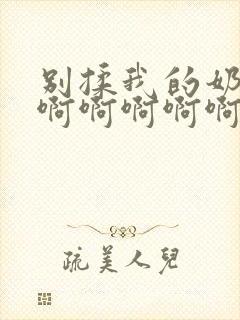 别揉我的奶
啊啊啊啊啊
疏美人兒